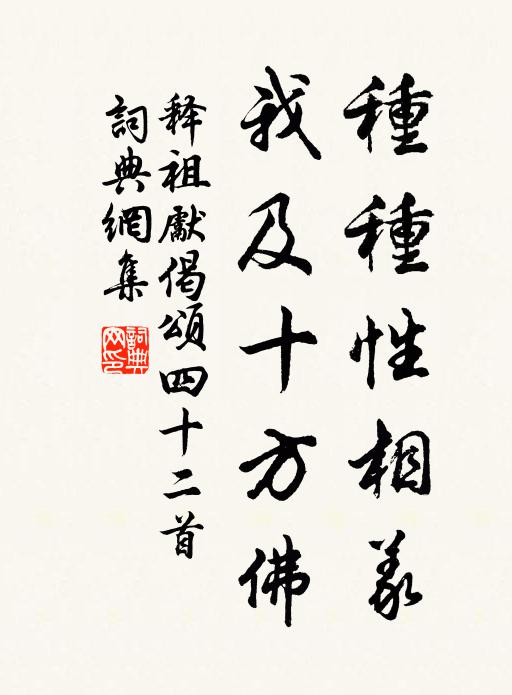 種種性相義
我及十方佛
释祖獻偈頌四十二首
詞典網集
詞典網印